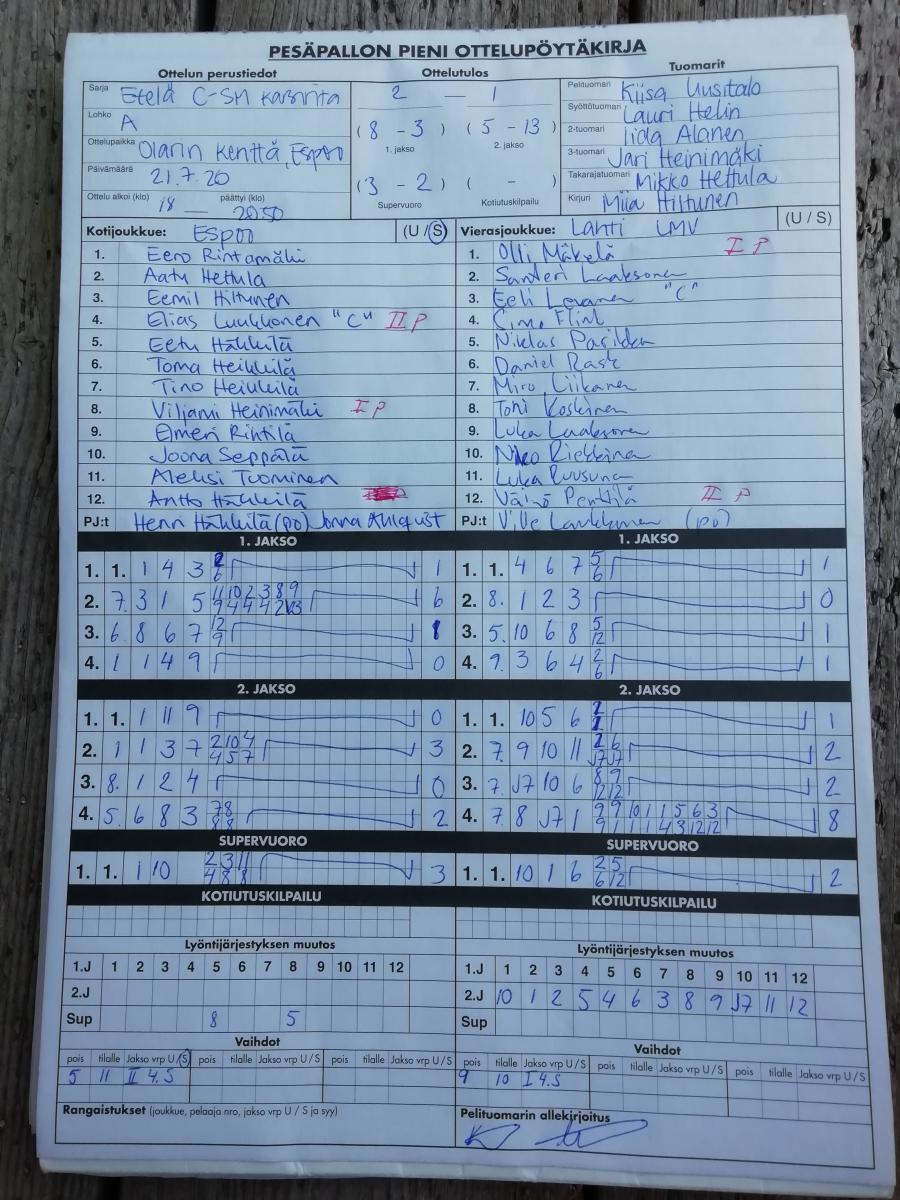 PESÄPALLON PIENI OTTELUPÖYTÄKIRJA
Ottelun perustiedot
Sarja Etelä C-SM karsinta
Lohko A
Ottelupaikka Olarin kenttä, Espoo
Päivämäärä 21.7.20
Ottelu alkoi (klo) 18 — päättyi (klo) 20.50
Ottelutulos
2 — 1
( 8 - 3 ) ( 5 - 13 )
1. jakso 2. jakso
( 3 - 2 ) ( - )
Supervuoro Kotiutuskilpailu
Tuomarit
Pelituomari Kiisa Uusitalo
Syöttötuomari Lauri Helin
2-tuomari Iida Alanen
3-tuomari Jari Heinimäki
Takarajatuomari Mikko Hettula
Kirjuri Miia Hiltunen
Kotijoukkue: Espoo (U / S)
1. Eero Rintamäki
2. Aatu Hettula
3. Eemil Hiltunen
4. Elias Luukkonen "C" II P
5. Eetu Häkkilä
6. Toma Heikkilä
7. Tino Heikkilä
8. Viljami Heinimäki I P
9. Emeri Rihtilä
10. Joona Seppälä
11. Aleksi Tuominen
12. Antto Häkkilä
PJ:t Henri Häkkilä (po) Jonna Ahlquist
Vierasjoukkue: Lahti LMV (U / S)
1. Olli Mäkelä I P
2. Santeri Laaksonen
3. Eeli "C"
4. Flink
5. Niklas
6. Daniel Rask
7. Miro Liikanen
8. Toni Koskinen
9. Luka Laaksonen
10. Niko Riekkinen
11. Luka Ruusunen
12. Väinö Penttilä II P
PJ:t Ville (po)
1. JAKSO
1. 1. 1 4 3 6 1
2. 7. 3 1 5 11 10 2 3 8 9 6
9 4 4 4 2
3. 6. 8 6 7 12 1
9
4. 1 1 4 9 0
2. JAKSO
1. 1. 1 11 9 0
2. 1 1 3 7 2 10 4 3
4 5 7
3. 8. 1 2 4 0
4. 5. 6 8 3 7 8 2
8 8
SUPERVUORO
1. 1. 1 10 2 3 11 3
4 8 8
KOTIUTUSKILPAILU
1. JAKSO
1. 1. 4 6 7 5 1
6
2. 8. 1 2 3 0
3. 5. 10 6 8 5 1
12
4. 9. 3 6 4 2 1
6
2. JAKSO
1. 1. 10 5 6 1
2. 7. 9 10 11 2 6 2
J7 J7
3. 7. J7 10 6 8 9 2
12 12
4. 7. 8 J7 1 9 9 10 1 1 5 6 3 8
9 1 1 1 4 3 12 12
SUPERVUORO
1. 1. 10 1 6 2 5 2
6 12
KOTIUTUSKILPAILU
Lyöntijärjestyksen muutos
1.J 1 2 3 4 5 6 7 8 9 10 11 12
2.J
Sup 8 5
Vaihdot
pois tilalle Jakso vrp U/S pois tilalle Jakso vrp U/S pois tilalle Jakso vrp U/S
5 11 II 4.S
Rangaistukset (joukkue, pelaaja nro, jakso vrp U / S ja syy)
Lyöntijärjestyksen muutos
1.J 1 2 3 4 5 6 7 8 9 10 11 12
2.J 10 1 2 5 4 6 3 8 9 J7 11 12
Sup
Vaihdot
pois tilalle Jakso vrp U/S pois tilalle Jakso vrp U/S pois tilalle Jakso vrp U/S
9 10 I 4.S
Pelituomarin allekirjoitus